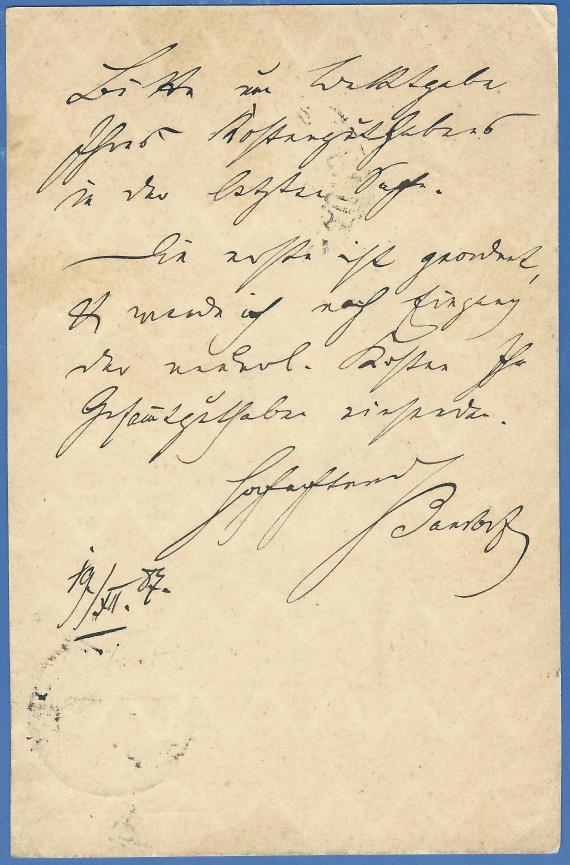 Bitte um Bekanntgabe
Ihres Kostenguthabens
in der letzten Sache.
— Die erste ist geordnet,
& werde ich nach Eingang
der Kosten Ihr
Gesamtguthaben einsenden.
Hochachtend
19/XII. 87.